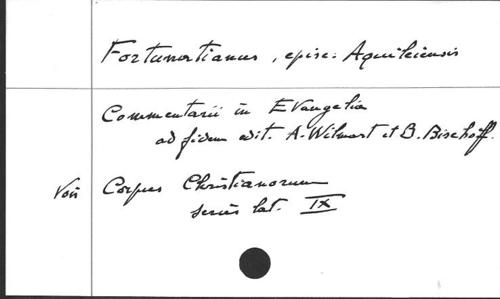 Fortunatianus, episc. Aquileiensis
Commentarii in Evangelia
ad fidem edit. A. Wilmart et B. Bischoff.
Voir Corpus Christianorum
series lat. IX